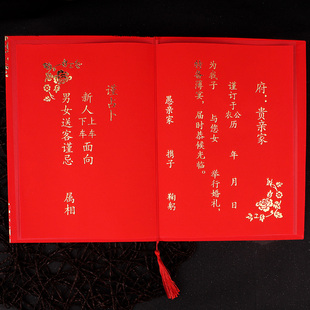 府：贵亲家
谨订于农公历 年 月 日
为我子 与您女 举行婚礼，
敬备薄宴，届时恭候光临。
愚亲家 携子 鞠躬
谨占卜
新人上车下车面向
男女送客谨忌 属相